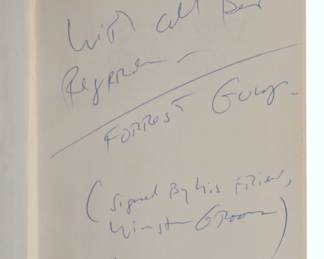 With all best
Regards —
FORREST Gump —
(Signed By his FRIEND,
Winston Groom)